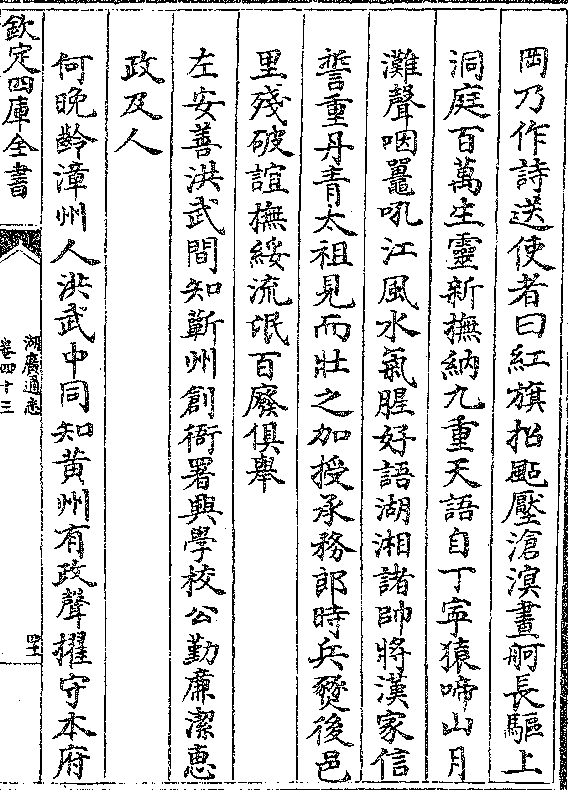 岡乃作詩送使者曰紅旗招颭壓滄溟畫舸長驅上
洞庭百萬生靈新撫納九重天語自丁寕猿啼山月
灘聲咽鼉吼江風水氣腥好語湖湘諸帥將漢家信
誓重丹青太祖見而壯之加授承務郎時兵燹後邑
里殘破誼撫綏流氓百廢俱舉
左安善洪武間知蘄州創衙署興學校公勤廉潔惠
政及人
何晩齡漳州人洪武中同知黄州有政聲擢守本府
欽定四庫全書
湖廣通志
卷四十三